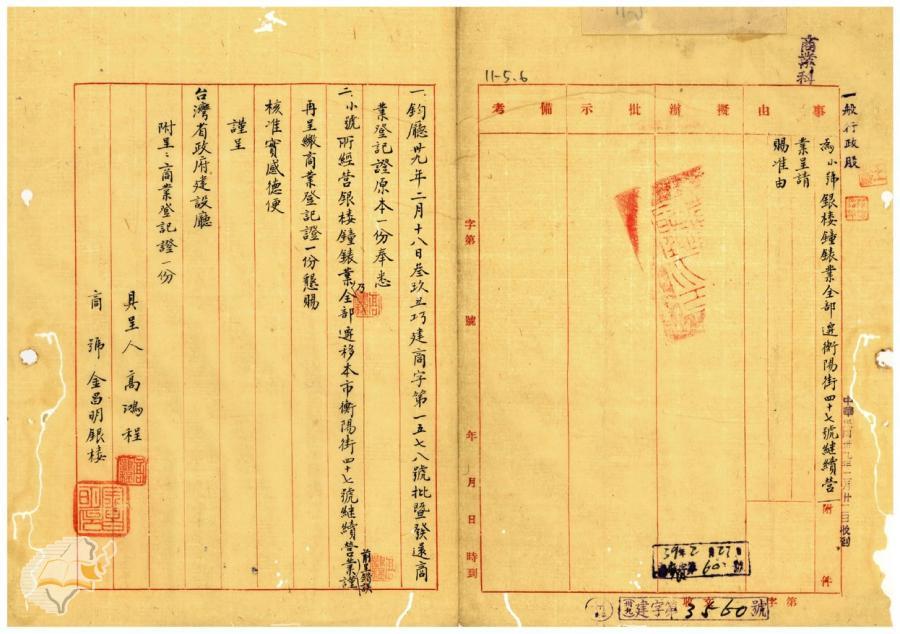 商業科
一般行政股
11-5.6
事由
擬辦
批示
備考
為小號銀楼鐘錶業全部遷衡陽街四十七號継續營
業呈請
賜准由
附件
字第
號
年
月
日
時到
39年2月27日
字第
收文
建字第3560號
一、鈞廳卅九年二月十八日叁玖丑巧建商字第一五七八號批暨發還商
業登記證原本一份奉悉
二、小號所經营銀楼鐘錶業全部遷移本市衡陽街四十七號継續营業謹
再呈繳商業登記證一份懇賜
核准實感德便
謹呈
台灣省政府建設廳
附呈：商業登記證一份
具呈人 高鴻程
商號 金昌明銀楼